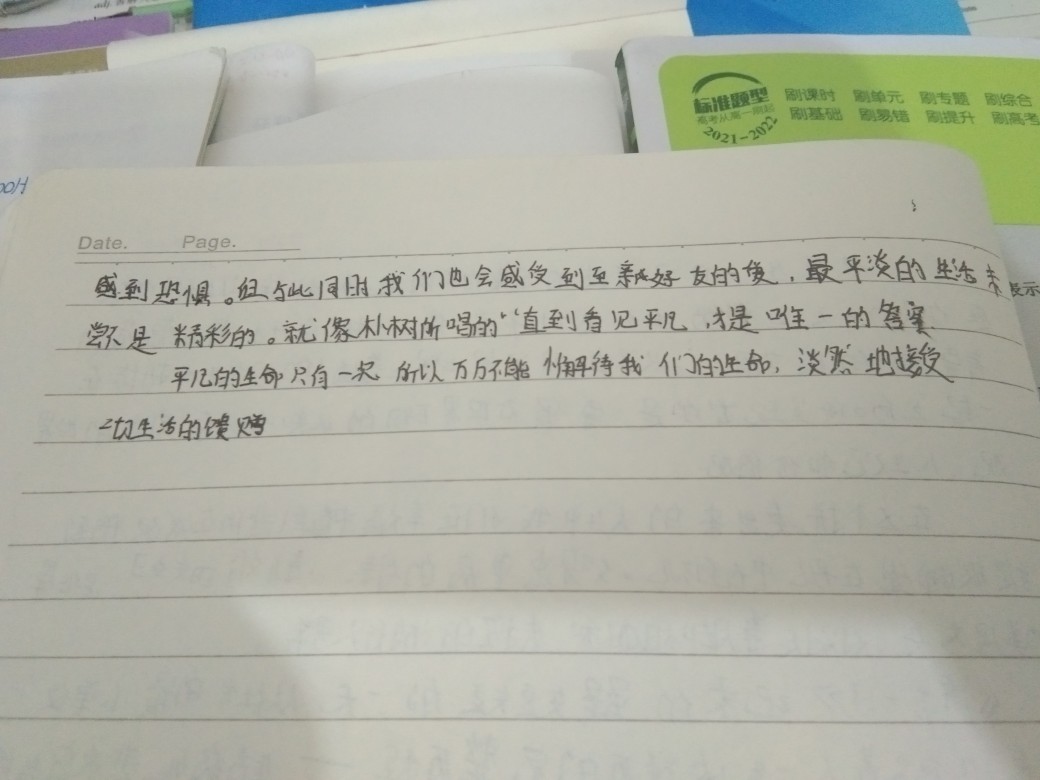 标准题型
高考从高一刷起
2021-2022
刷课时 刷单元 刷专题 刷综合
刷基础 刷易错 刷提升 刷高考
Date. Page.
感到恐惧。但与此同时我们也会感受到至亲好友的爱，最平淡的生活未
尝不是精彩的。就像朴树所唱的“直到看见平凡，才是唯一的答案
平凡的生命只有一次 所以万万不能懈待我们的生命，淡然地接受
一切生活的馈赠
表示